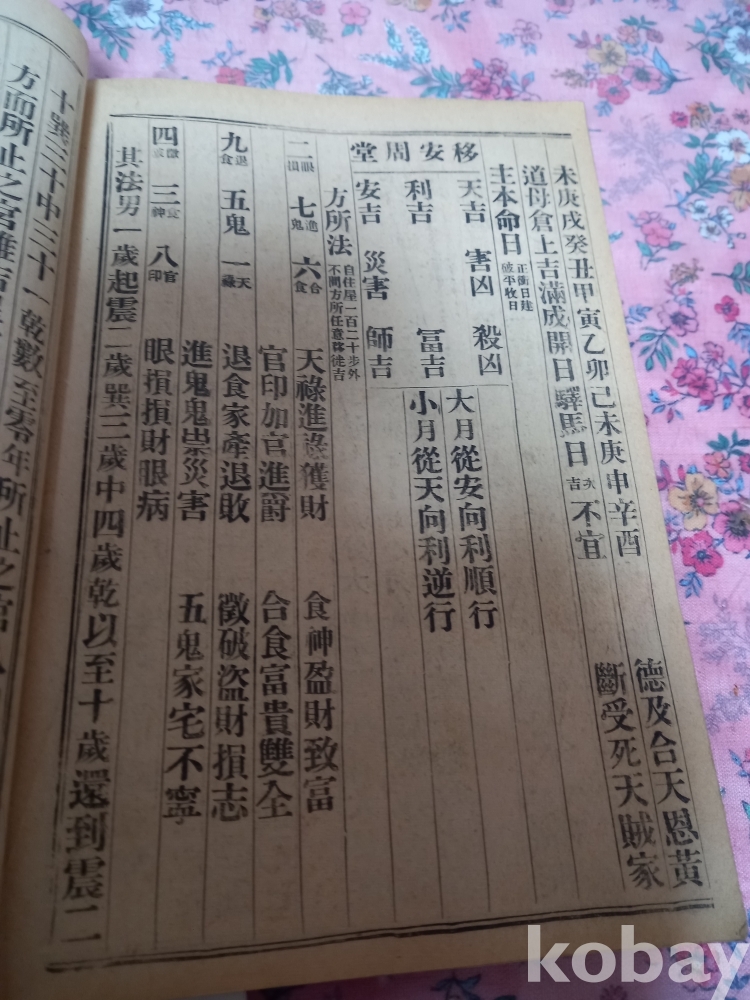 未庚戌癸丑甲寅乙卯己未庚申辛酉 德及合天恩黃
道母倉上吉滿成開日驛馬日大吉 不宜 斷受死天賊家
主本命日 正衝日建破平收日
移安周堂
天吉 害凶 殺凶 大月從安向利順行
利吉 富吉 小月從天向利逆行
安吉 災害 師吉
方所法 自住屋一百二十步外不問方所任意移徙吉
二眼損 七進鬼 六合食 天祿進祿獲財 食神盈財致富
官印加官進爵 合食富貴雙全
九退食 五鬼 一天祿 退食家產退敗 徵破盜財損志
進鬼鬼祟災害 五鬼家宅不寧
四徵破 三食神 八官印 眼損損財眼病
其法男一歲起震二歲巽三歲中四歲乾以至十歲還到震二
十巽三十中三十一乾數至零年所止之宮
方而所止之宮雖吉
kobay